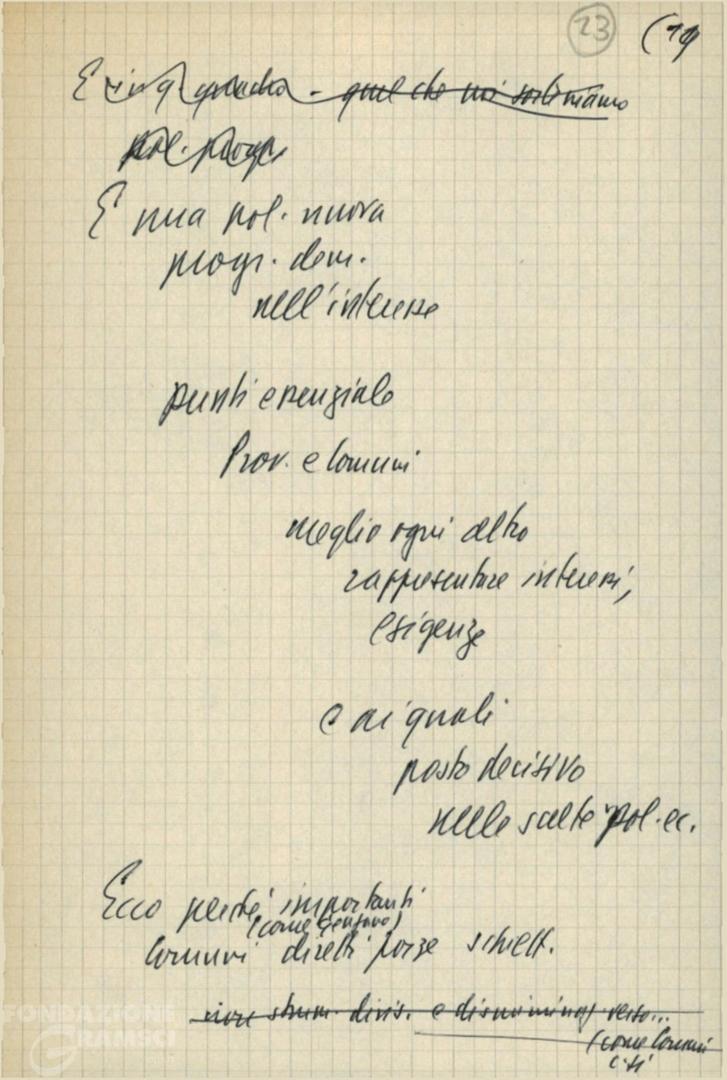 23 (19
E in quel che noi sosteniamo
pol. progr
E una pol. nuova
progr. dem.
nell'interesse
punti essenziale
Prov. e Comuni
meglio ogni altro
rappresentare interessi,
esigenze
e ai quali
posto decisivo
nelle scelte pol. ec.
Ecco perché importanti
(come Genova)
Comuni diretti forze schiett.
non strum. divis. e discriminaz verso...
(come Comuni
c.si
FONDAZIONE
GRAMSCI